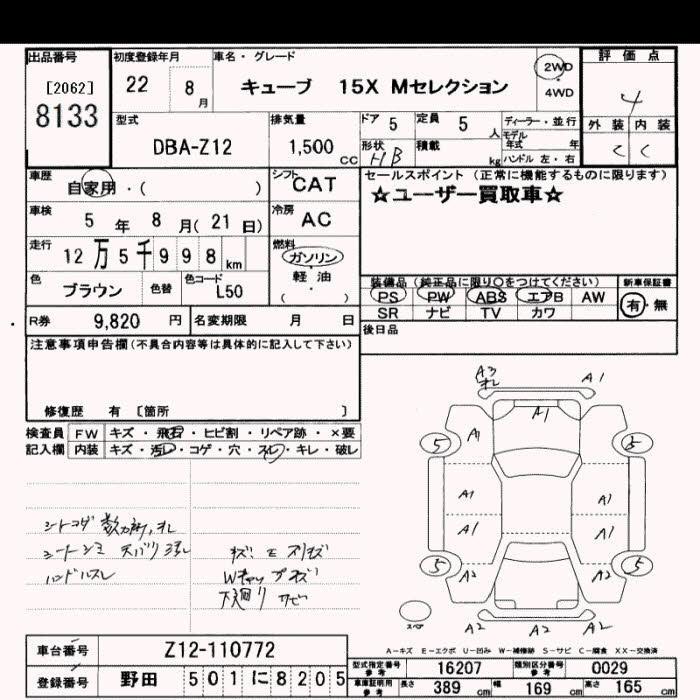 出品番号 [2062] 8133
初度登録年月 22 8 月
車名・グレード キューブ 15X Mセレクション
2WD
4WD
評価点 4
外装 内装
C C
型式 DBA-Z12
排気量 1,500 CC
ドア 5 定員 5 人
形状 HB 積載 kg
ディーラー・並行
モデル年式 年
ハンドル 左・右
車歴 自家用・( )
シフト CAT
セールスポイント (正常に機能するものに限ります)
☆ユーザー買取車☆
車検 5 年 8 月( 21 日)
冷房 AC
走行 12 万 5 千 9 9 8 km
燃料 ガソリン
軽・油
( )
色 ブラウン 色替 色コード L50
装備品 (純正品に限り○をつけてください) 新車保証書
PS PW ABS エアB AW 有・無
SR ナビ TV カワ
R券 9,820 円 名変期限 月 日
後日品
注意事項申告欄(不具合内容等は具体的に記入して下さい)
修復歴 有 〔箇所 〕
検査員 FW キズ・飛石・ヒビ割・リペア跡・×要
記入欄 内装 キズ・汚レ・コゲ・穴・スレ・キレ・破レ
A3 A1
A1
A1
5 5
A1 A1
A1 A1
5 5
A2 A2
A2 A2 A2
ハンドルスレ
下廻り サビ
A-キズ E-エクボ U-凹み W-補修跡 S-サビ C-腐食 XX-交換済
車台番号 Z12-110772
登録番号 野田 501 に 8205
型式指定番号 参考 16207 類別区分番号 参考 0029
車庫証明用 参考 長さ 389 cm 幅 169 cm 高さ 165 cm